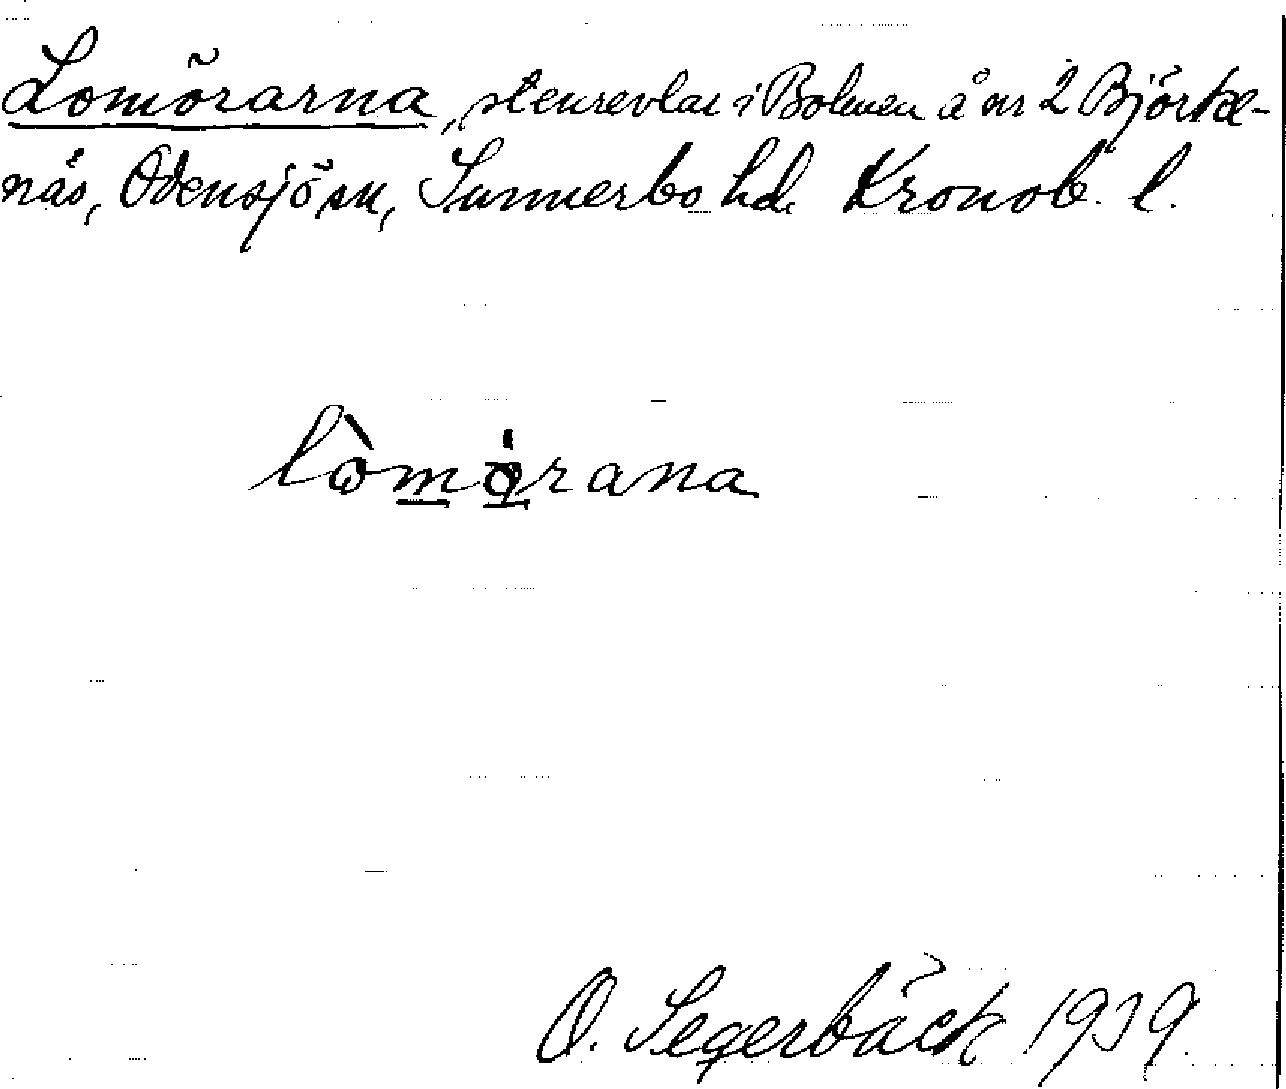 Lomörarna, stenrevlar i Bolmen å nr 2 Björke-
näs, Odensjö sn, Sunnerbo hd. Kronob. l.
lòmǫ́rana
O. Segerbäck 1939.